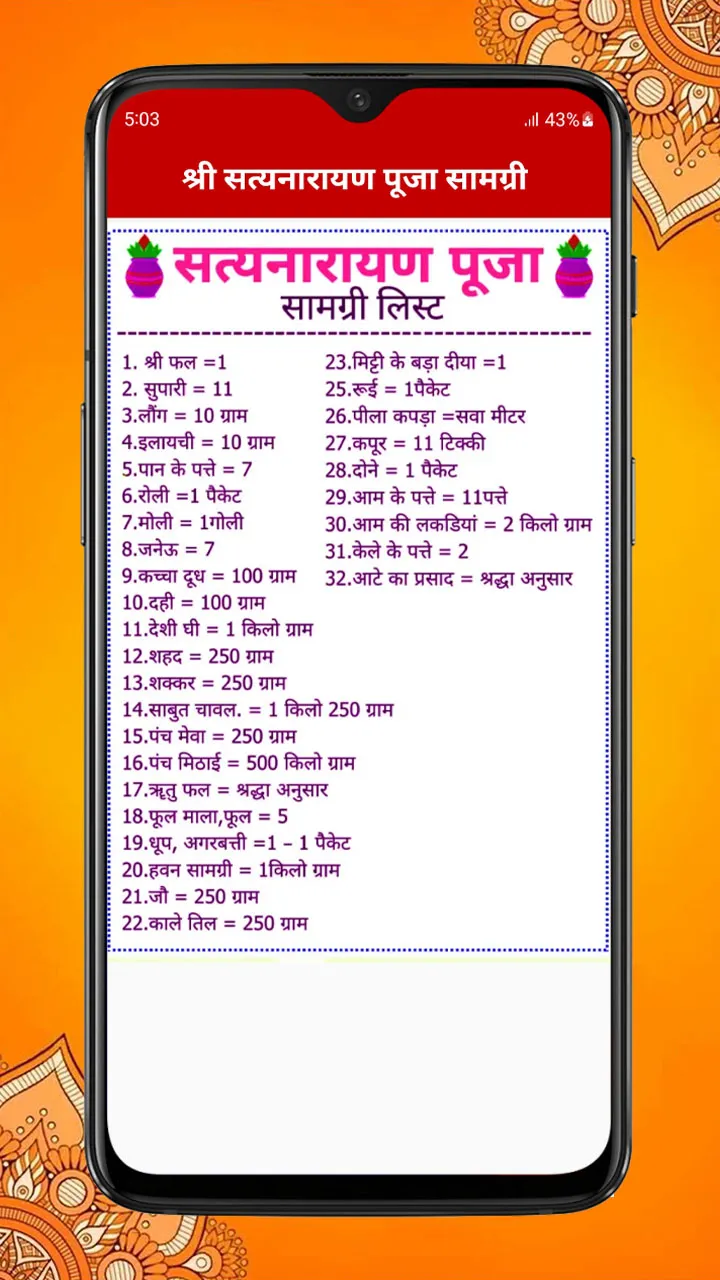 5:03
43%
श्री सत्यनारायण पूजा सामग्री
सत्यनारायण पूजा
सामग्री लिस्ट
1. श्री फल =1
2. सुपारी = 11
3.लौंग = 10 ग्राम
4.इलायची = 10 ग्राम
5.पान के पत्ते = 7
6.रोली =1 पैकेट
7.मोली = 1गोली
8.जनेऊ = 7
9.कच्चा दूध = 100 ग्राम
10.दही = 100 ग्राम
11.देशी घी = 1 किलो ग्राम
12.शहद = 250 ग्राम
13.शक्कर = 250 ग्राम
14.साबुत चावल. = 1 किलो 250 ग्राम
15.पंच मेवा = 250 ग्राम
16.पंच मिठाई = 500 किलो ग्राम
17.ऋतु फल = श्रद्धा अनुसार
18.फूल माला,फूल = 5
19.धूप, अगरबत्ती =1 – 1 पैकेट
20.हवन सामग्री = 1किलो ग्राम
21.जौ = 250 ग्राम
22.काले तिल = 250 ग्राम
23.मिट्टी के बड़ा दीया =1
25.रूई = 1पैकेट
26.पीला कपड़ा =सवा मीटर
27.कपूर = 11 टिक्की
28.दोने = 1 पैकेट
29.आम के पत्ते = 11पत्ते
30.आम की लकडियां = 2 किलो ग्राम
31.केले के पत्ते = 2
32.आटे का प्रसाद = श्रद्धा अनुसार